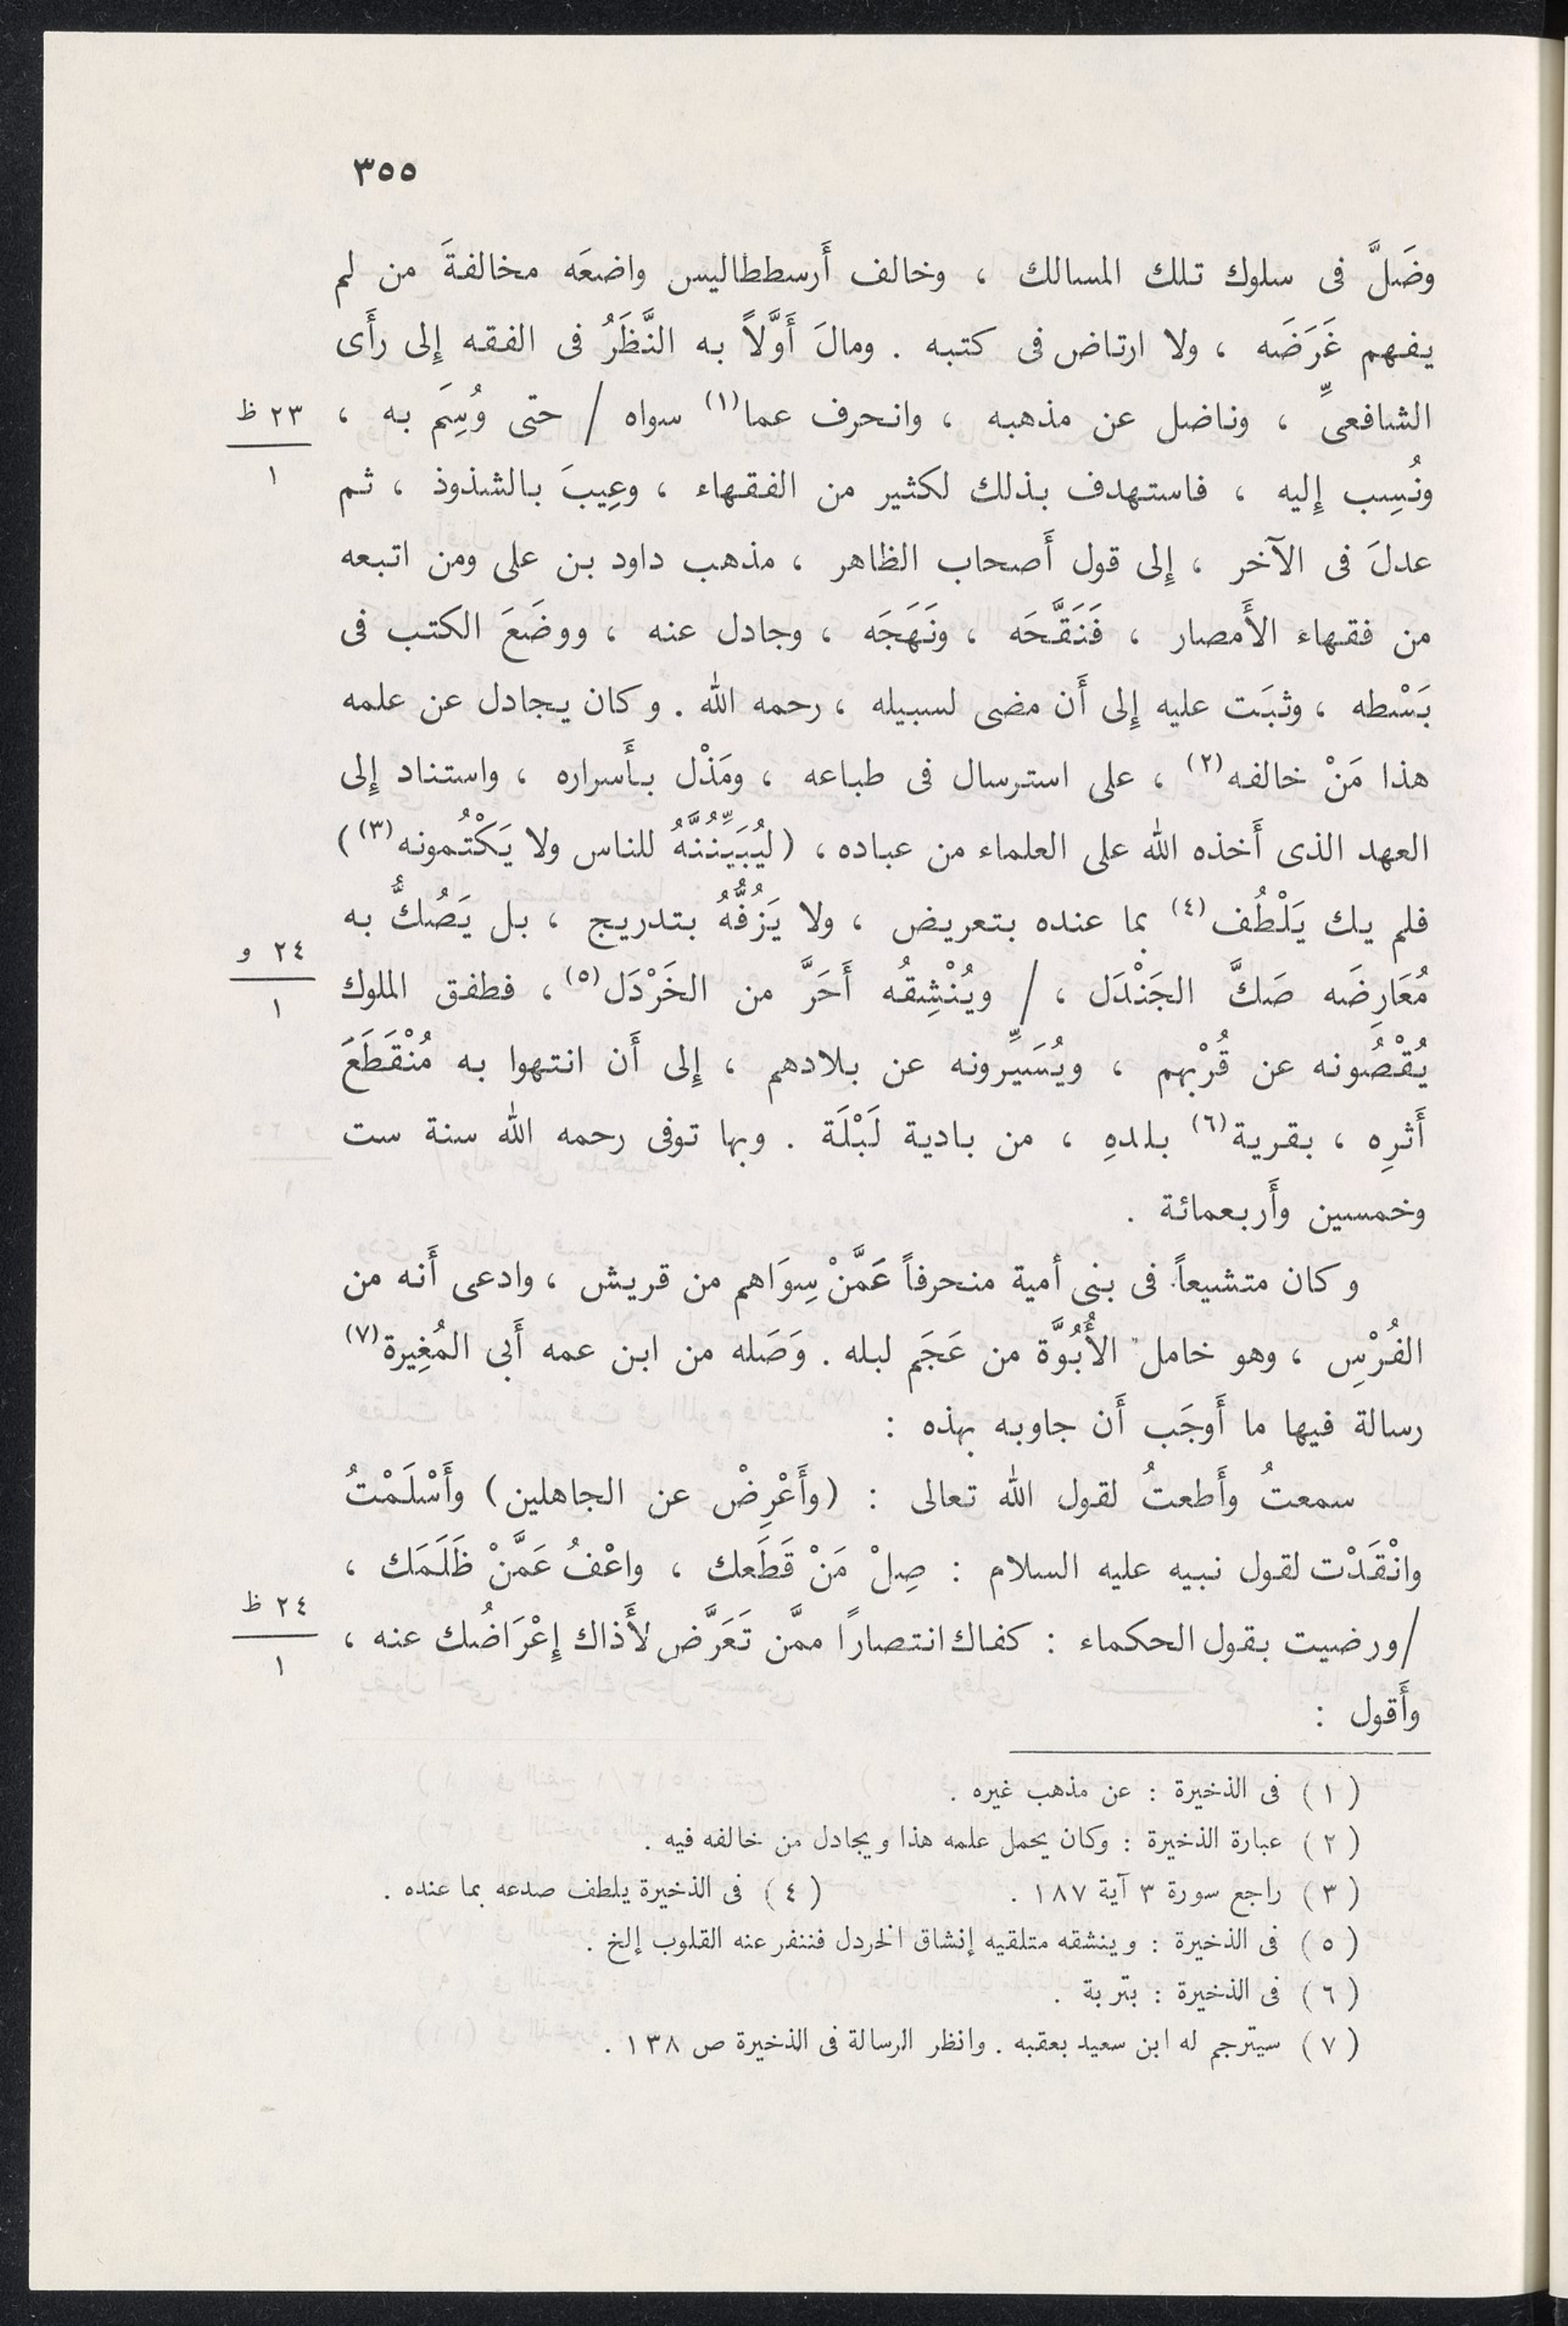 ٣٥٥
وضَلَّ فى سلوك تلك المسالك ، وخالف أَرسططاليس واضعَه مخالفةَ من لم
يفهم غَرَضَه ، ولا ارتاض فى كتبه . ومالَ أَوَّلاً به النَّظَرُ فى الفقه إِلى رأَى
الشافعىِّ ، وناضل عن مذهبه ، وانحرف عما(١) سواه / حتى وُسِمَ به ،
٢٣ ظ
١
ونُسِب إِليه ، فاستهدف بذلك لكثير من الفقهاء ، وعِيبَ بالشذوذ ، ثم
عدلَ فى الآخر ، إِلى قول أَصحاب الظاهر ، مذهب داود بن على ومن اتبعه
من فقهاء الأَمصار ، فَنَقَّحَه ، ونَهَجَه ، وجادل عنه ، ووضَعَ الكتب فى
بَسْطه ، وثبَت عليه إِلى أَن مضى لسبيله ، رحمه الله . وكان يجادل عن علمه
هذا مَنْ خالفه(٢) ، على استرسال فى طباعه ، ومَذْل بأَسراره ، واستناد إِلى
العهد الذى أَخذه الله على العلماء من عباده ، (ليُبَيِّنُنَّهُ للناس ولا يَكْتُمونه(٣))
فلم يك يَلْطُف(٤) بما عنده بتعريض ، ولا يَزُفُّهُ بتدريج ، بل يَصُكُّ به
٢٤ و
١
مُعَارِضَه صَكَّ الجَنْدَل ، / ويُنْشِقُه أَحَرَّ من الخَرْدَل(٥) ، فطفق الملوك
يُقْصُونه عن قُرْبهم ، ويُسَيِّرونه عن بلادهم ، إِلى أَن انتهوا به مُنْقَطَعَ
أَثرِه ، بقرية(٦) بلدهِ ، من بادية لَبْلَة . وبها توفى رحمه الله سنة ست
وخمسين وأَربعمائة .
وكان متشيعاً فى بنى أمية منحرفاً عَمَّنْ سِوَاهم من قريش ، وادعى أَنه من
الفُرْسِ ، وهو خامل الأُبُوَّة من عَجَم لبله . وَصَله من ابن عمه أَبى المُغِيرة(٧)
رسالة فيها ما أَوجَب أَن جاوبه بهذه :
سمعتُ وأَطعتُ لقول الله تعالى : (وأَعْرِضْ عن الجاهلين) وأَسْلَمْتُ
وانْقَدْت لقول نبيه عليه السلام : صِلْ مَنْ قَطَعك ، واعْفُ عَمَّنْ ظَلَمَك ،
٢٤ ظ
١
/ورضيت بقول الحكماء : كفاك انتصارًا ممَّن تَعَرَّض لأَذاك إِعْرَاضُك عنه ،
وأَقول :
(١) فى الذخيرة : عن مذهب غيره .
(٢) عبارة الذخيرة : وكان يحمل علمه هذا ويجادل من خالفه فيه .
(٣) راجع سورة ٣ آية ١٨٧ . (٤) فى الذخيرة يلطف صدعه بما عنده .
(٥) فى الذخيرة : وينشقه متلقيه إنشاق الخردل فننفر عنه القلوب إلخ .
(٦) فى الذخيرة : بتربة .
(٧) سيترجم له ابن سعيد بعقبه . وانظر الرسالة فى الذخيرة ص ١٣٨ .